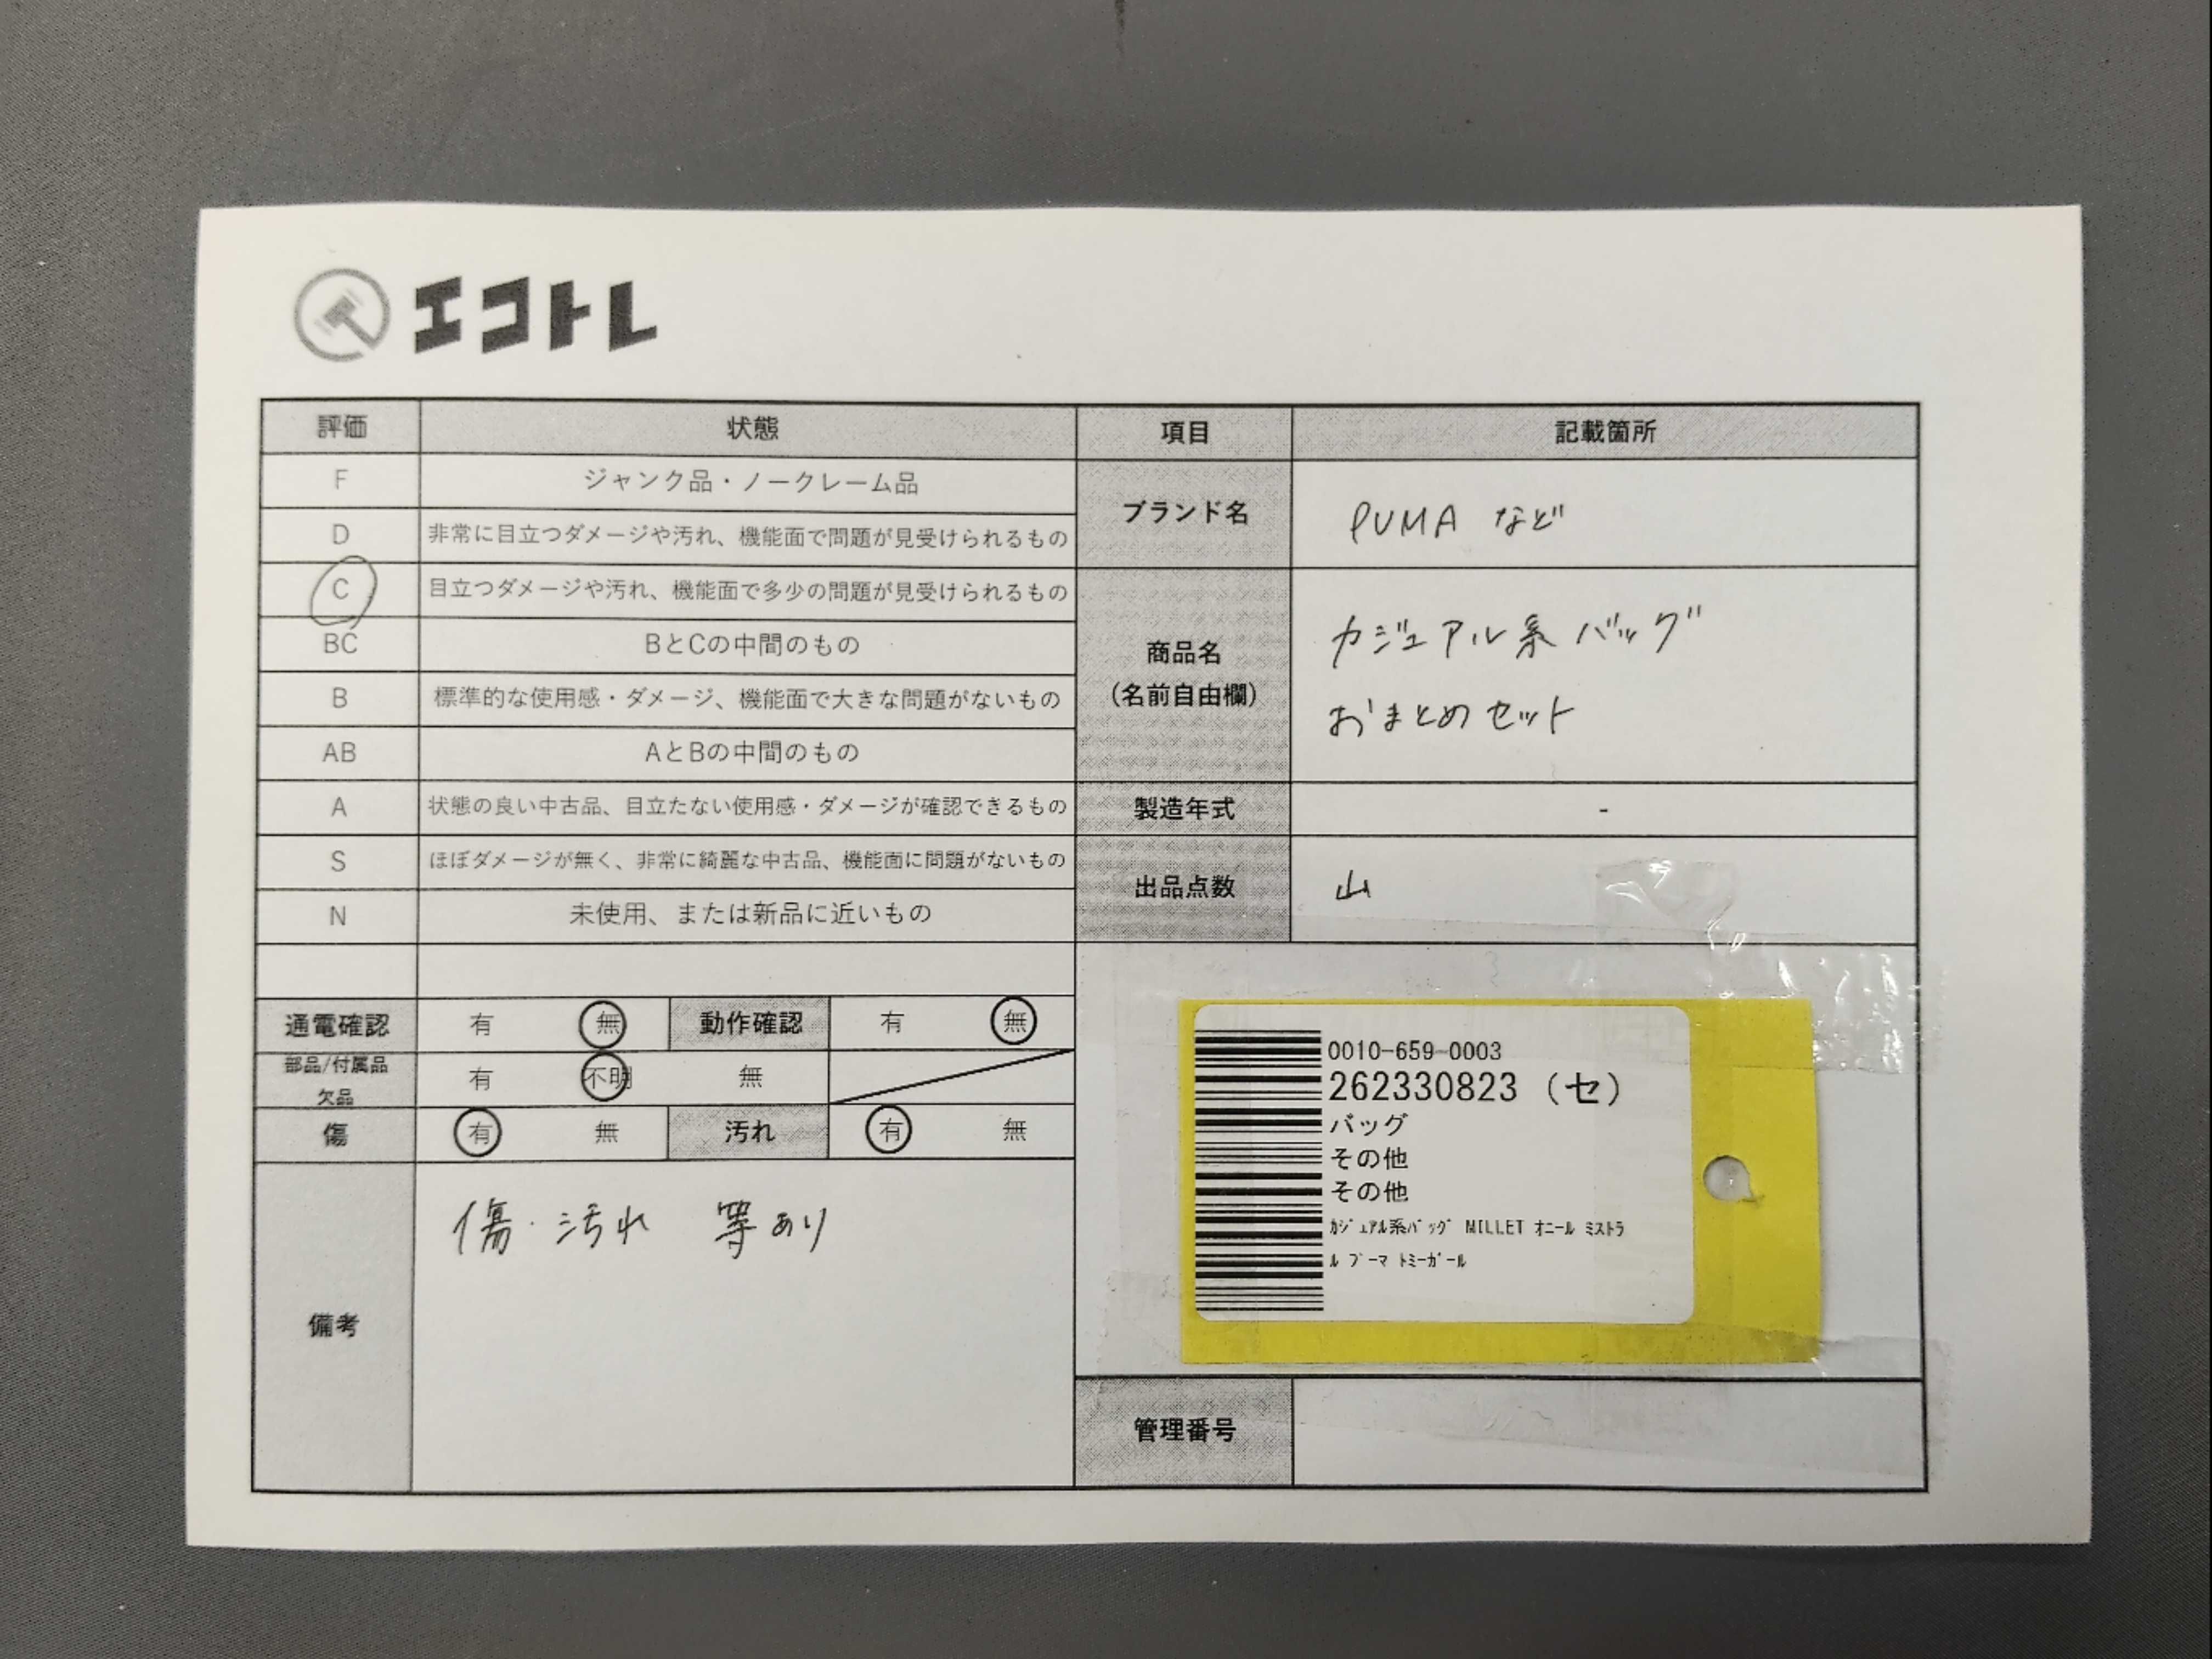 エコトレ
評価 状態 項目 記載箇所
F ジャンク品・ノークレーム品
D 非常に目立つダメージや汚れ、機能面で問題が見受けられるもの
C 目立つダメージや汚れ、機能面で多少の問題が見受けられるもの
BC BとCの中間のもの
B 標準的な使用感・ダメージ、機能面で大きな問題がないもの
AB AとBの中間のもの
A 状態の良い中古品、目立たない使用感・ダメージが確認できるもの
S ほぼダメージが無く、非常に綺麗な中古品、機能面に問題がないもの
N 未使用、または新品に近いもの
通電確認 有 無 動作確認 有 無
部品/付属品
欠品 有 不明 無
傷 有 無 汚れ 有 無
備考 傷・汚れ 等あり
ブランド名 PUMA など
商品名
(名前自由欄)
カジュアル系バッグ
おまとめセット
製造年式 -
出品点数 山
0010-659-0003
262330823 (セ)
バッグ
その他
その他
ｶｼﾞｭｱﾙ系ﾊﾞｯｸﾞ MILLET ｵﾆｰﾙ ﾐｽﾄﾗ
ﾙ ﾌﾟｰﾏ ﾄﾐｰｶﾞｰﾙ
管理番号